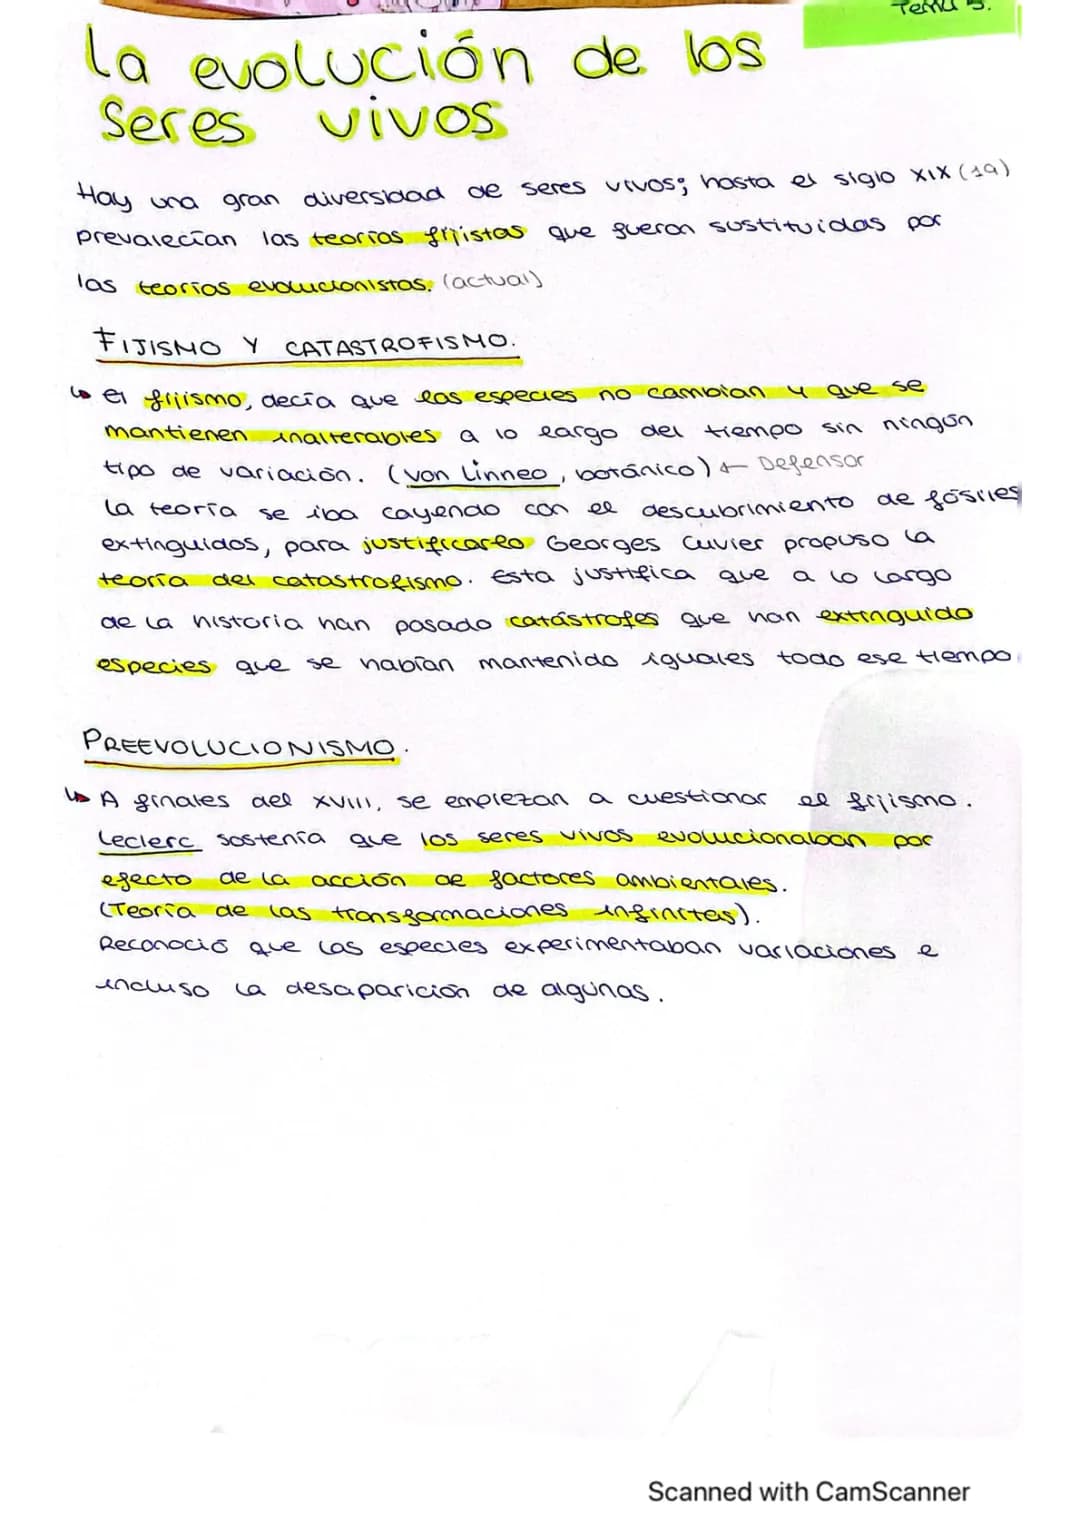 Tema 5.
La evolución de los
Seres vivos
Hay una gran diversidad de seres vivos; hasta el siglo XIX (19)
prevalecían las teorías fijistas que fueron sustituidas por
las teorías evolucionistas. (actual)
FIJISMO Y CATASTROFISMO.
↳ el fijismo, decía que las especies no cambian y que se
mantienen inalterables a lo largo del tiempo sin ningún
tipo de variación. (von Linneo, botánico) ← Defensor
La teoría se iba cayendo con el descubrimiento de fósiles
extinguidos, para justificarlo Georges Cuvier propuso la
teoría del catastrofismo. Esta justifica que a lo largo
de la historia han pasado catástrofes que han extinguido
especies que se habían mantenido iguales todo ese tiempo.
PREEVOLUCIONISMO.
↳ A finales del XVIII, se empiezan a cuestionar el fijismo.
Leclerc sostenía que los seres vivos evolucionaban por
efecto de la acción de factores ambientales.
(Teoría de las transformaciones infinitas).
Reconoció que las especies experimentaban variaciones e
incluso la desaparición de algunas.
Scanned with CamScanner